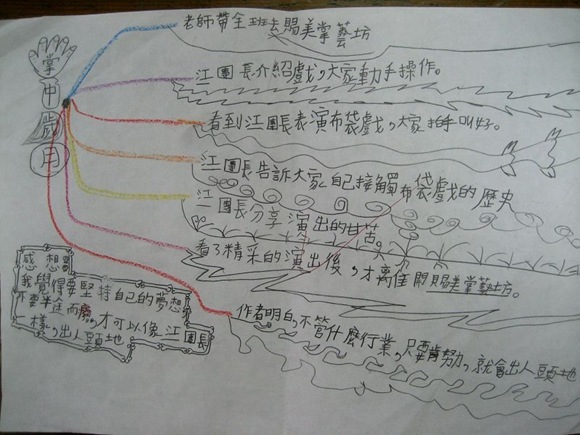 掌
中
戲
用
老師帶全班去賜美掌藝坊
江團長介紹戲,大家動手操作。
看到江團長表演布袋戲,大家拍手叫好。
江團長告訴大家自己接觸布袋戲的歷史
江團長分享演出的甘苦。
看了精采的演出後,才離佳開賜美堂藝坊。
作者明白,不管什麼行業,只要肯努力,就會出人頭地
感想:
我覺得要堅持自己的夢想
不要半途而廢,才可以像江團長
一樣,出人頭地